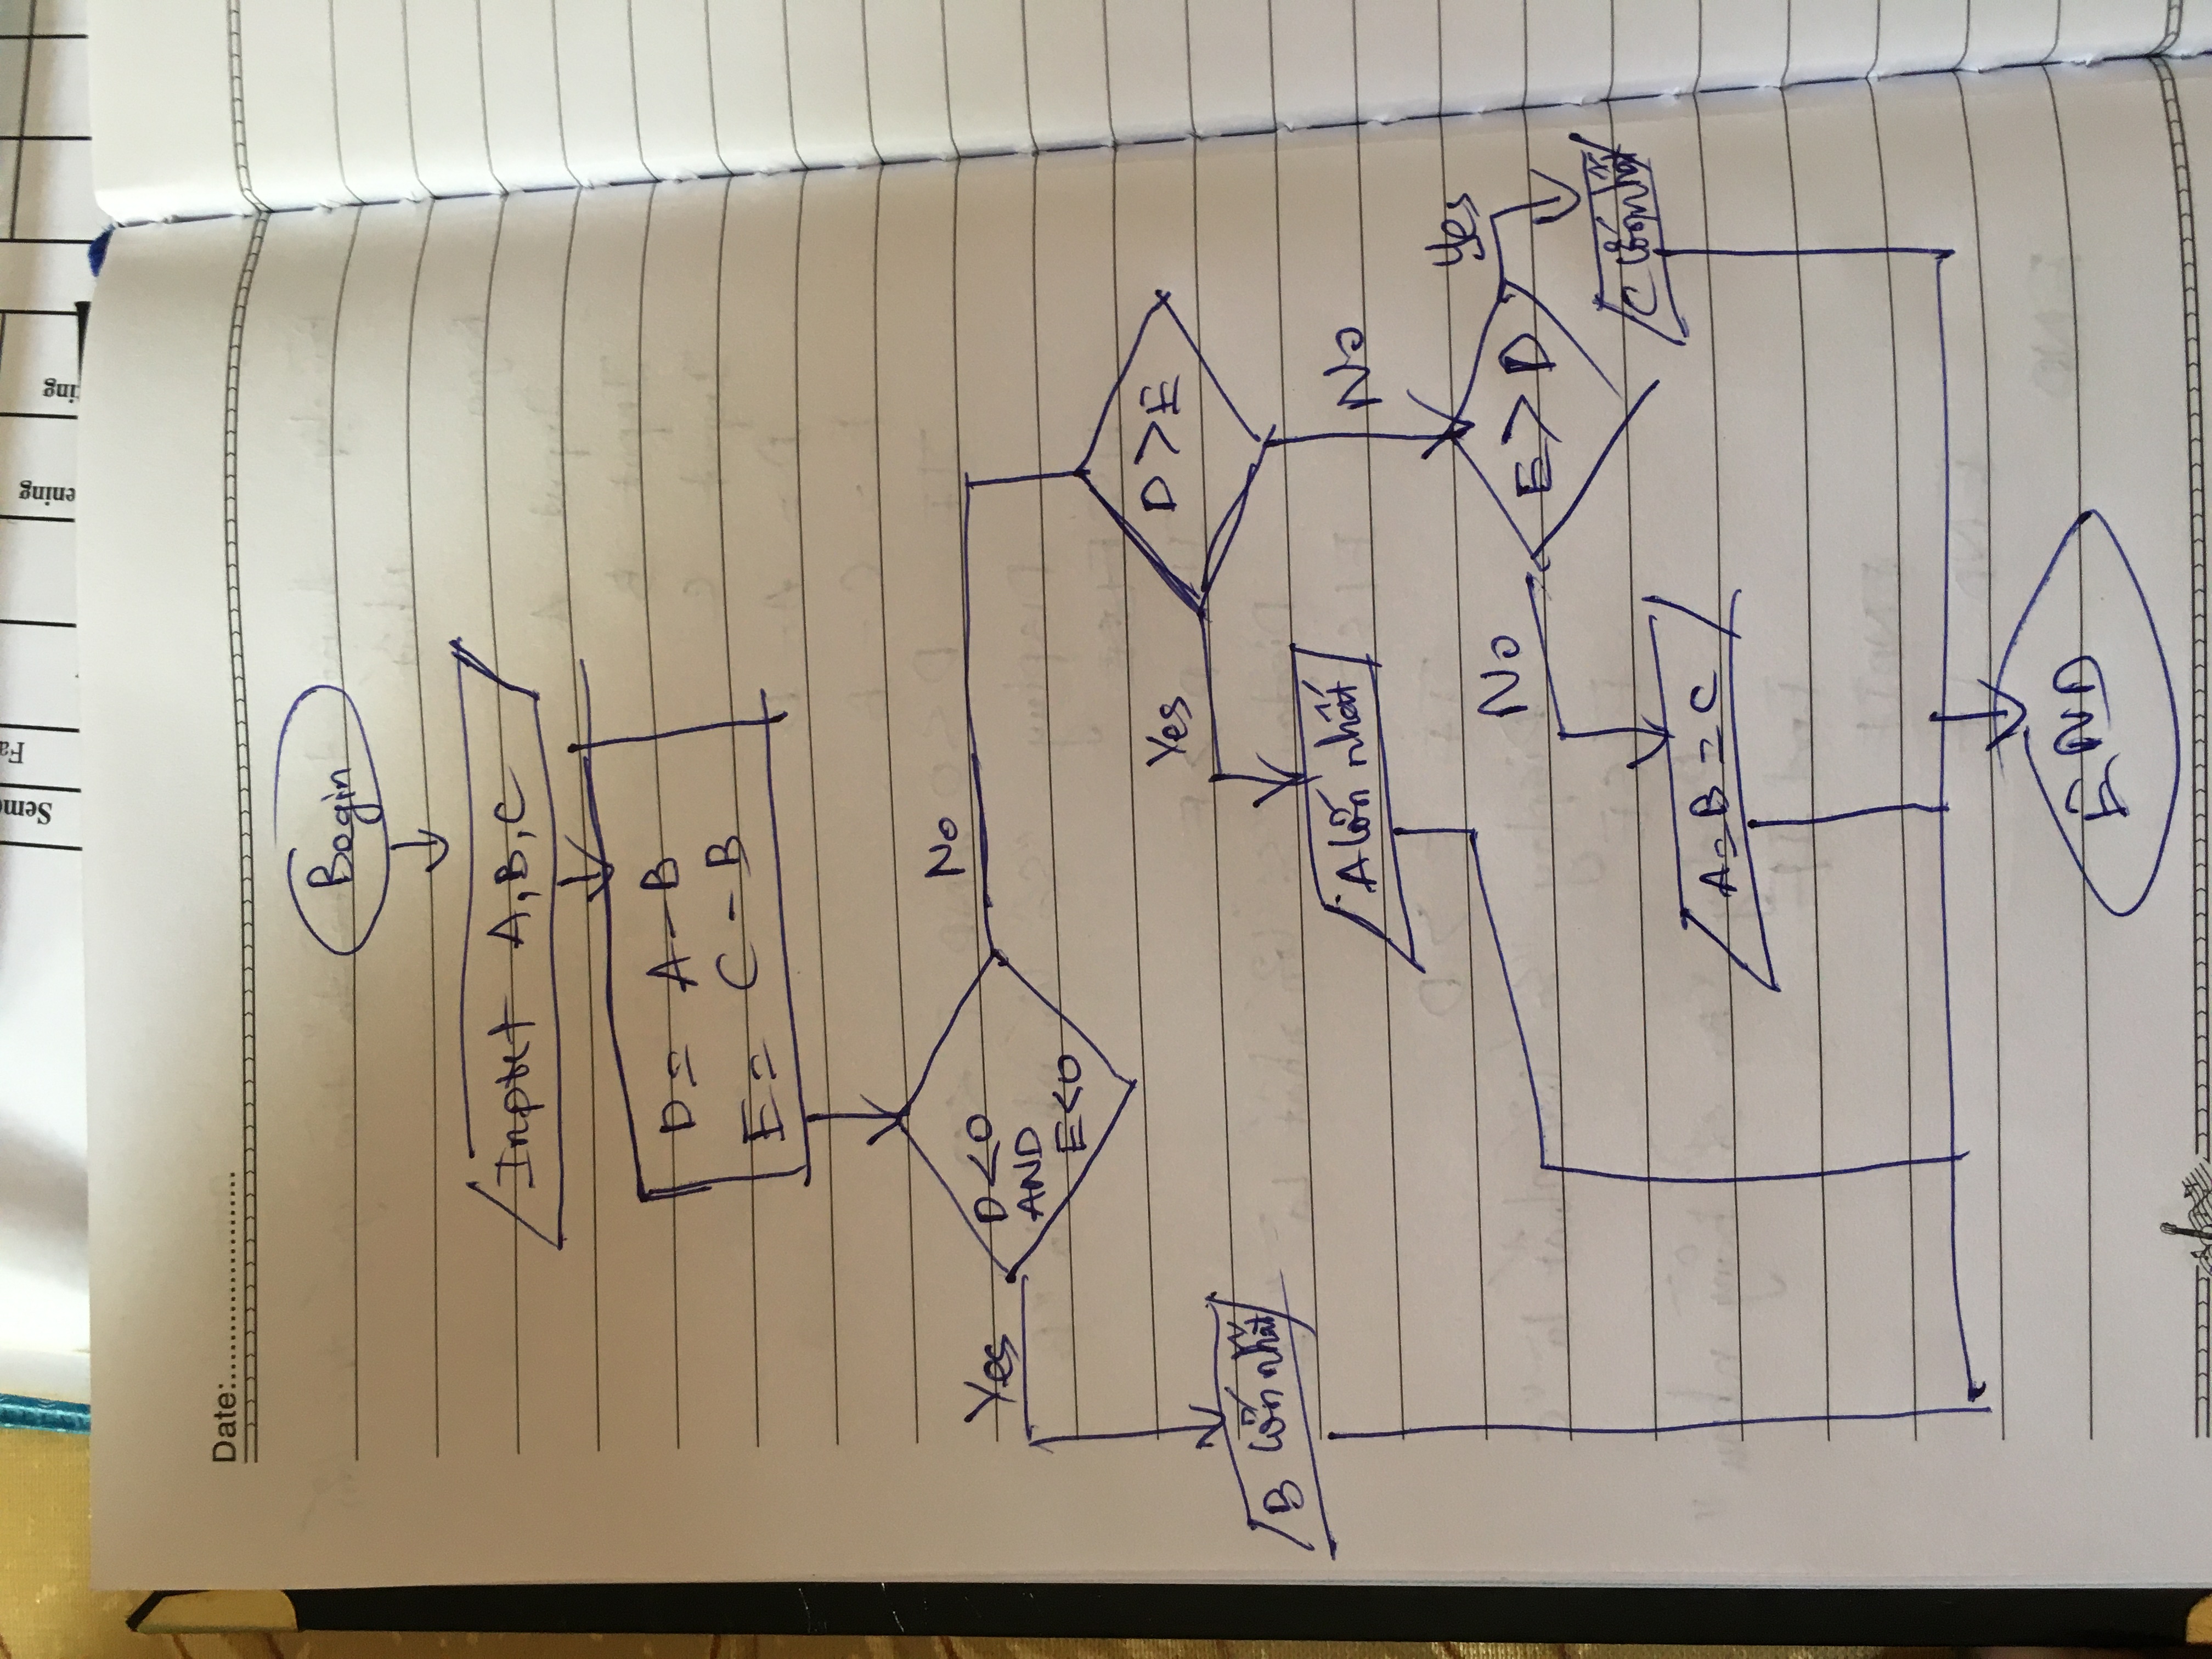 Seme
Fa
ening
ing
Date:......................
Begin
Input A, B, C
D = A - B
E = C - B
D<0
AND
E<0
Yes
No
D > E
Yes
No
B lớn nhất
A lớn nhất
E > D
No
Yes
C lớn nhất
A = B = C
END